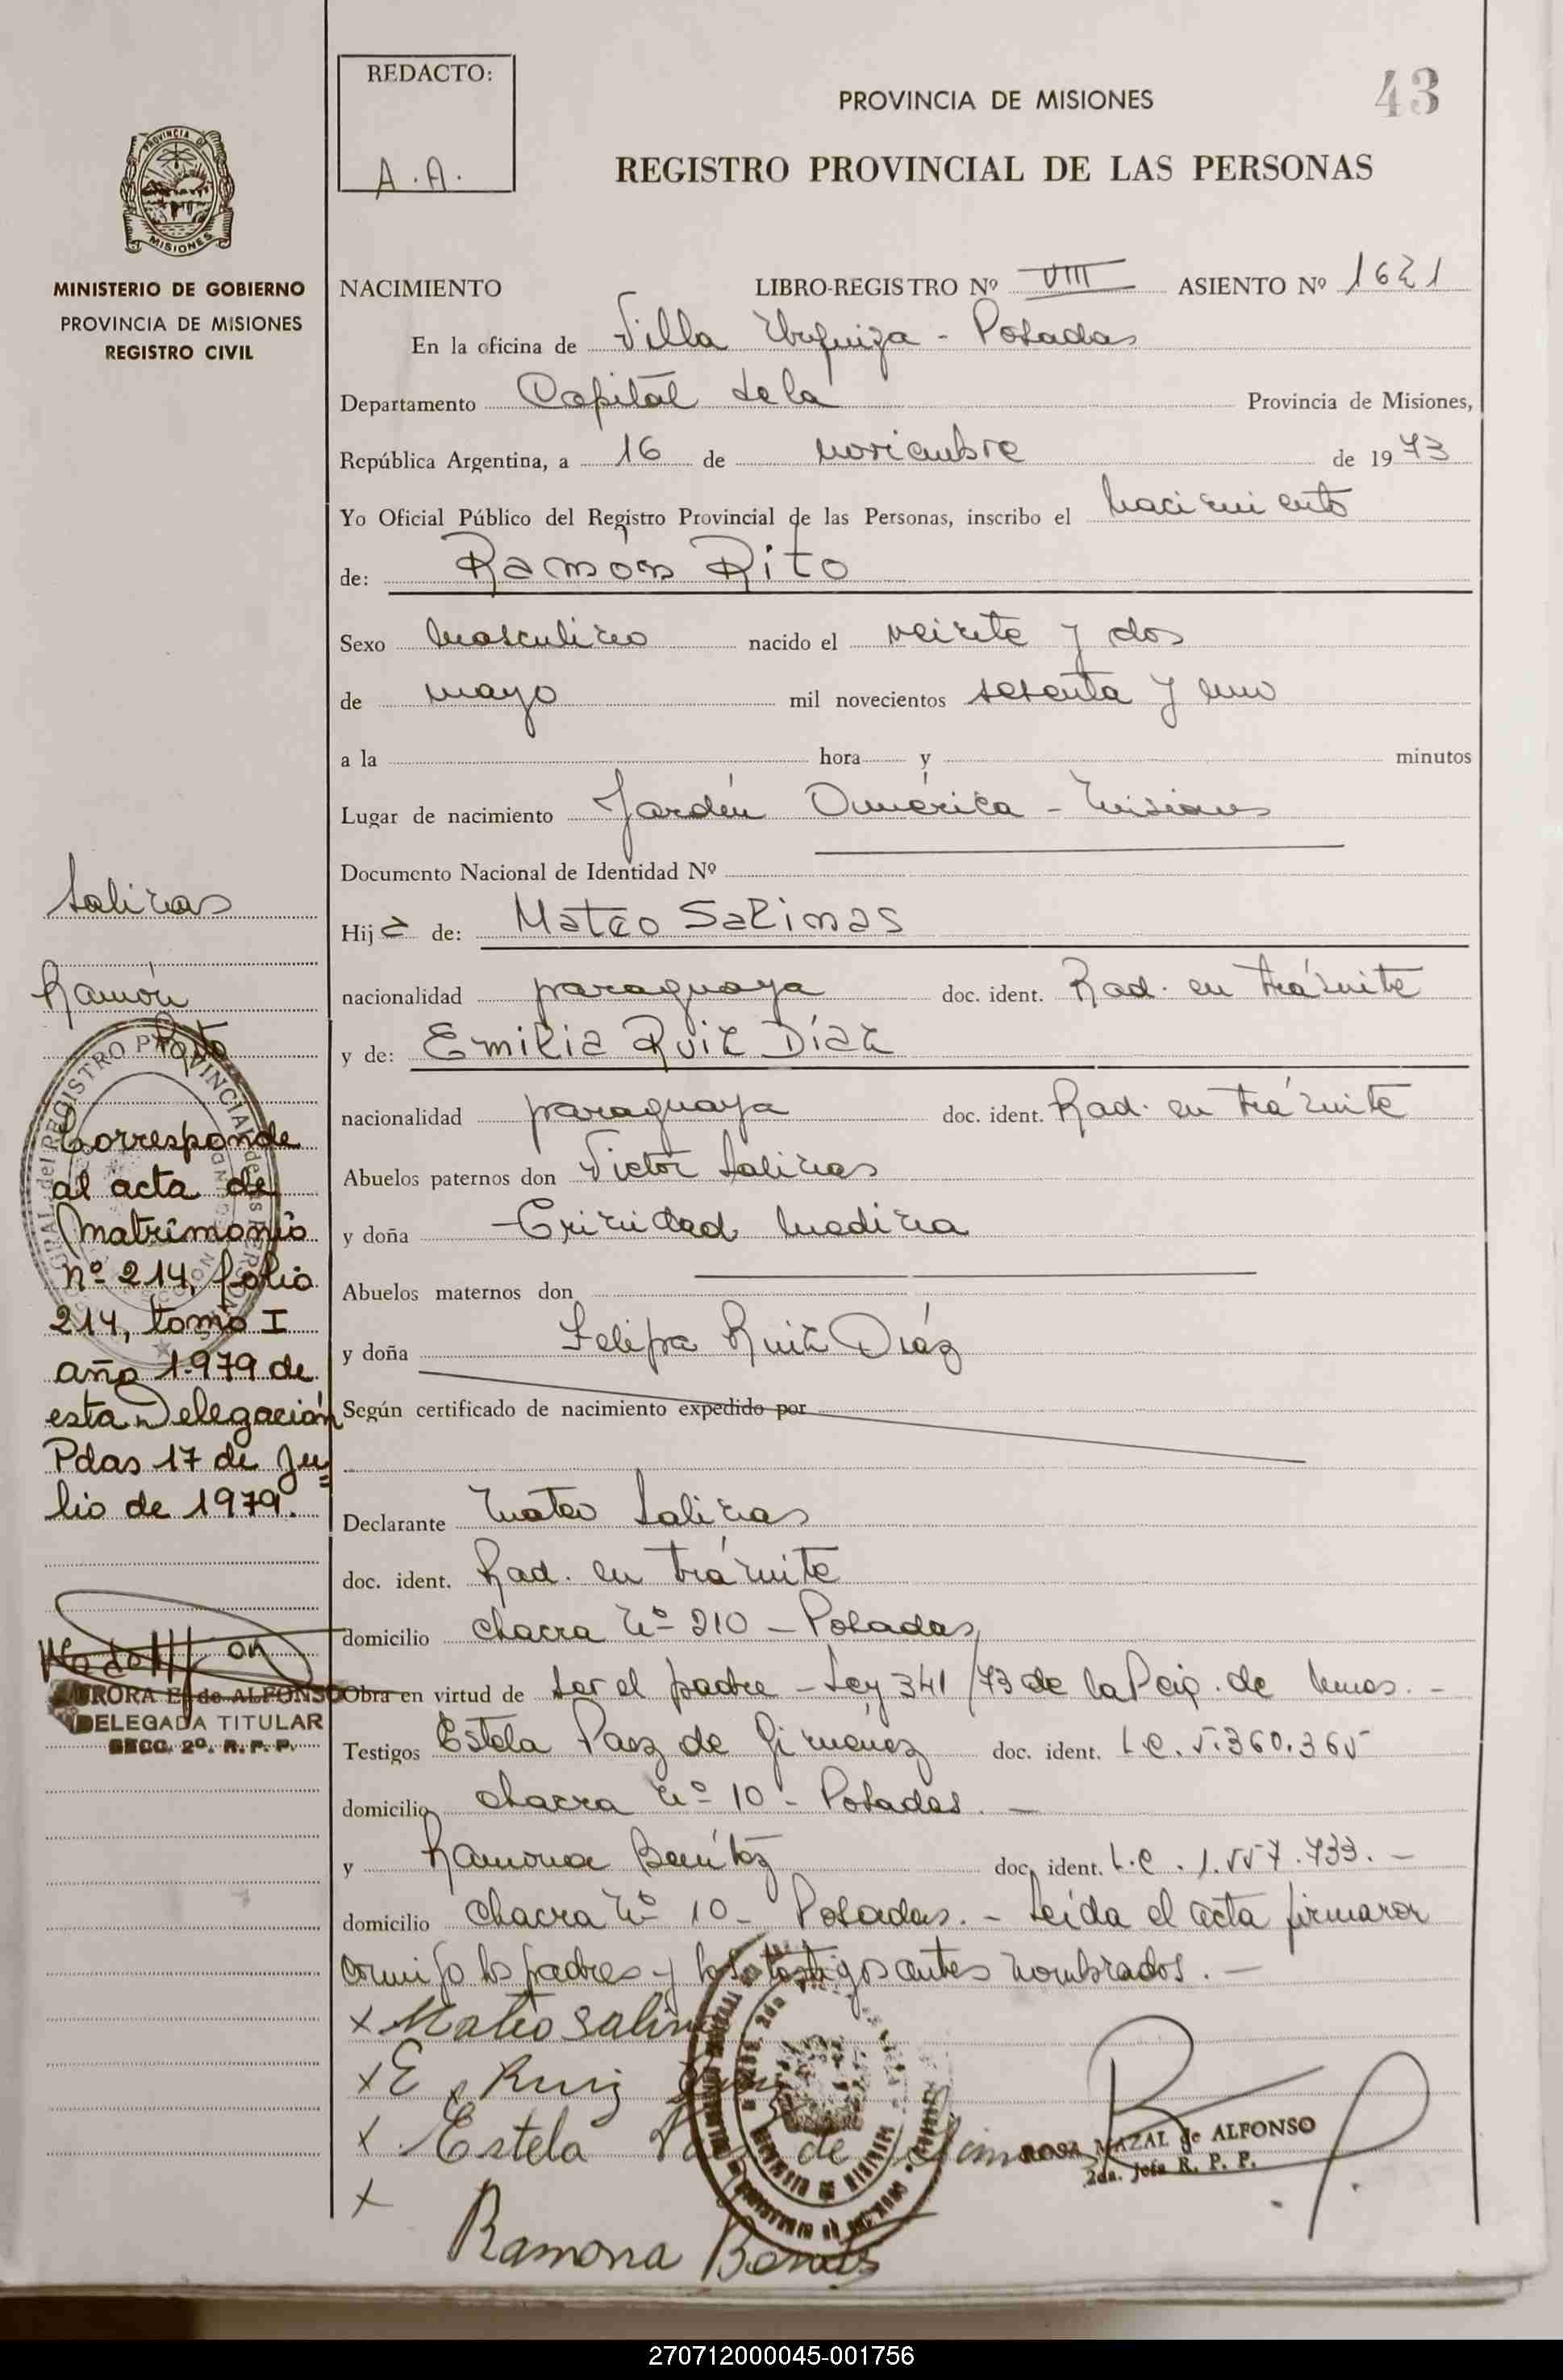 REDACTO:
A.A.
43
PROVINCIA DE MISIONES
REGISTRO PROVINCIAL DE LAS PERSONAS
PROVINCIA DE
MISIONES
MINISTERIO DE GOBIERNO
PROVINCIA DE MISIONES
REGISTRO CIVIL
NACIMIENTO LIBRO-REGISTRO Nº VIII ASIENTO Nº 1621
En la oficina de Villa Urquiza - Posadas
Departamento Capital de la Provincia de Misiones,
República Argentina, a 16 de noviembre de 1973
Yo Oficial Público del Registro Provincial de las Personas, inscribo el nacimiento
de: Ramón Rito
Sexo masculino nacido el veinte y dos
de mayo mil novecientos sesenta y uno
a la hora y minutos
Lugar de nacimiento Jardín América - Misiones
Documento Nacional de Identidad Nº
Hijo de: Mateo Salinas
nacionalidad paraguaya doc. ident. Rad. en trámite
y de: Emilia Ruiz Díaz
nacionalidad paraguaya doc. ident. Rad. en trámite
Abuelos paternos don Victor Salinas
y doña Trinidad Medina
Abuelos maternos don
y doña Felipa Ruiz Díaz
Según certificado de nacimiento expedido por
Declarante Mateo Salinas
doc. ident. Rad. en trámite
domicilio chacra Nº 210 - Posadas
Obra en virtud de ser el padre - Ley 341/73 de la Pcia. de Mnes. -
Testigos Estela Paez de Gimenez doc. ident. L.C. 5.360.365
domicilio chacra nº 10 - Posadas. -
y Ramona Benítez doc. ident. L.C. 1.557.733. -
domicilio chacra Nº 10 - Posadas. - Leída el acta firmaron
conmigo los padres y los testigos antes nombrados. -
x Mateo Salinas
x E. Ruiz
x Estela de
x
Ramona
ROSA MAZAL de ALFONSO
2da. Jefa R. P. P.
Salinas
Ramón
Rito
Corresponde
al acta de
Matrimonio
nº 214, folio
214, tomo I
año 1979 de
esta Delegación
Pdas 17 de Ju=
lio de 1979.
AURORA E. de ALFONSO
DELEGADA TITULAR
SECC. 2º. R. P. P.
270712000045-001756